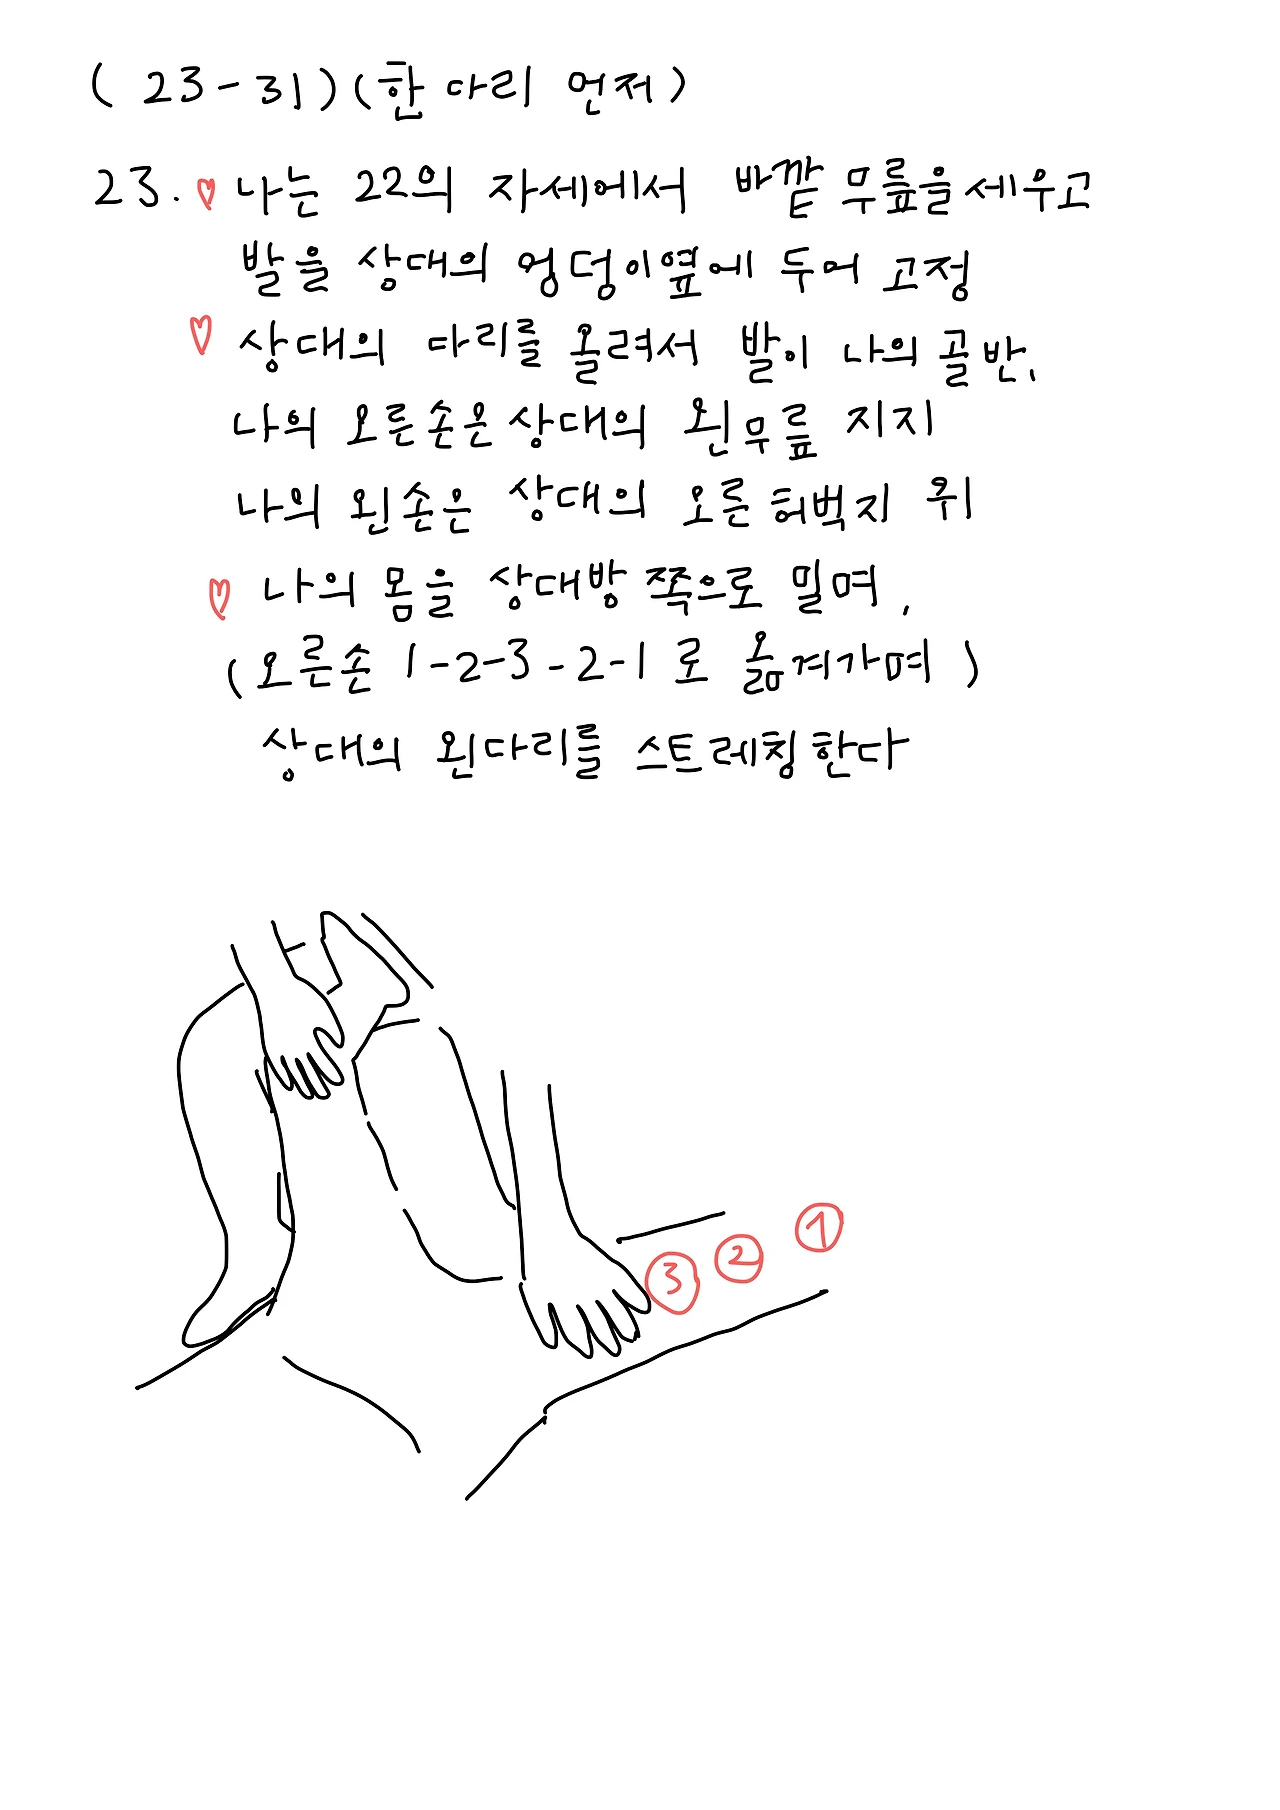 (23-31)(한 다리 먼저)
23. ♡ 나는 22의 자세에서 바깥 무릎을 세우고
발을 상대의 엉덩이옆에 두어 고정
♡ 상대의 다리를 올려서 발이 나의 골반,
나의 오른손은 상대의 왼무릎 지지
나의 왼손은 상대의 오른 허벅지 위
♡ 나의 몸을 상대방 쪽으로 밀며,
(오른손 1-2-3-2-1 로 옮겨가며)
상대의 왼다리를 스트레칭한다
③ ② ①